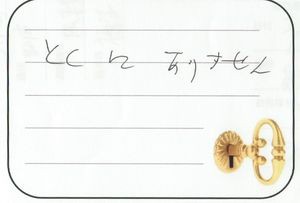 とくに ありません